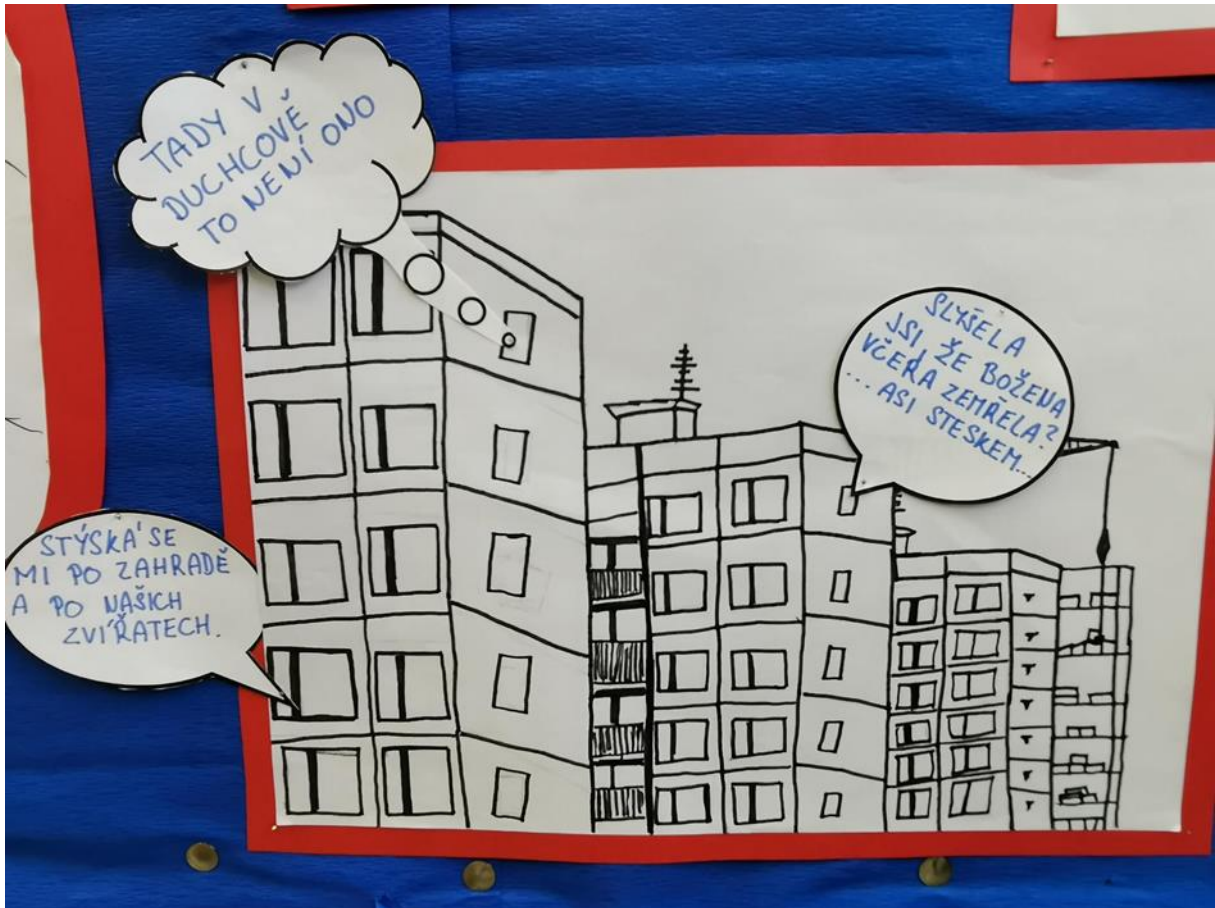 TADY V
DUCHCOVĚ
TO NENÍ ONO
SLYŠELA
JSI ŽE BOŽENA
VČERA ZEMŘELA?
... ASI STESKEM...
STÝSKÁ SE
MI PO ZAHRADĚ
A PO NAŠICH
ZVÍŘATECH.